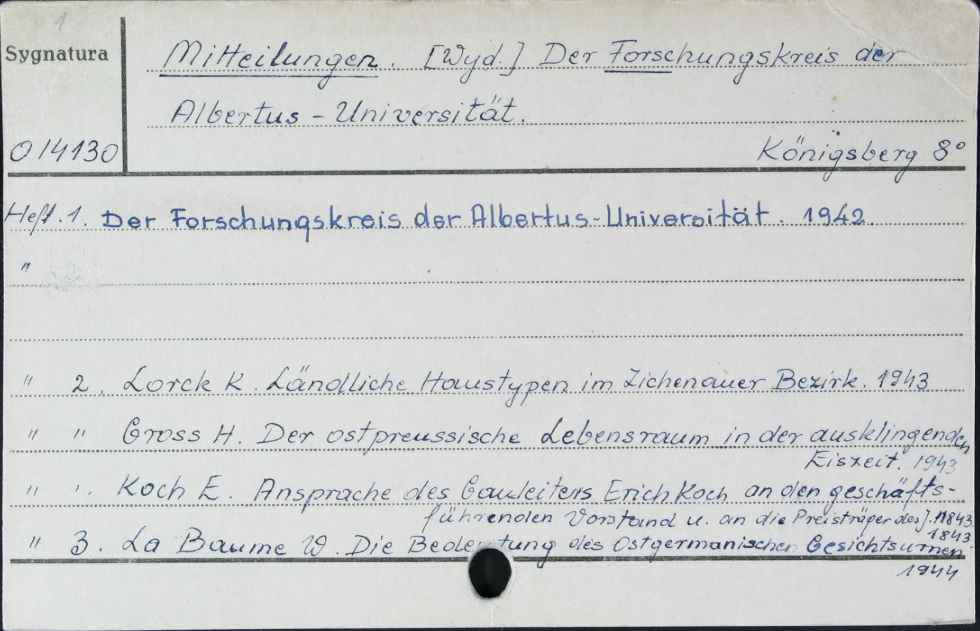 1
Sygnatura
Mitteilungen. [Wyd.] Der Forschungskreis der
Albertus-Universität.
O14130
Königsberg 8°
Heft. 1. Der Forschungskreis der Albertus-Universität. 1942.
"
" 2. Lorck K. Ländliche Haustypen im Zichenauer Bezirk. 1943
" " Gross H. Der ostpreussische Lebensraum in der ausklingenden
Eiszeit. 1943
" " Koch E. Ansprache des Gauleiters Erich Koch an den geschäfts-
führenden Vorstand u. an die Preisträger des J. 1843
1843
" 3. La Baume W. Die Bedeutung des Ostgermanischen Gesichtsurnen
1944